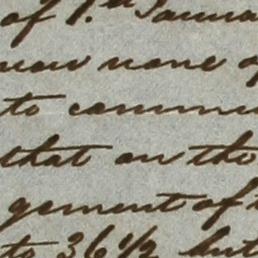 of 1.st Janua
none o
to commu
that on the
gement of
to 36 1/2 but